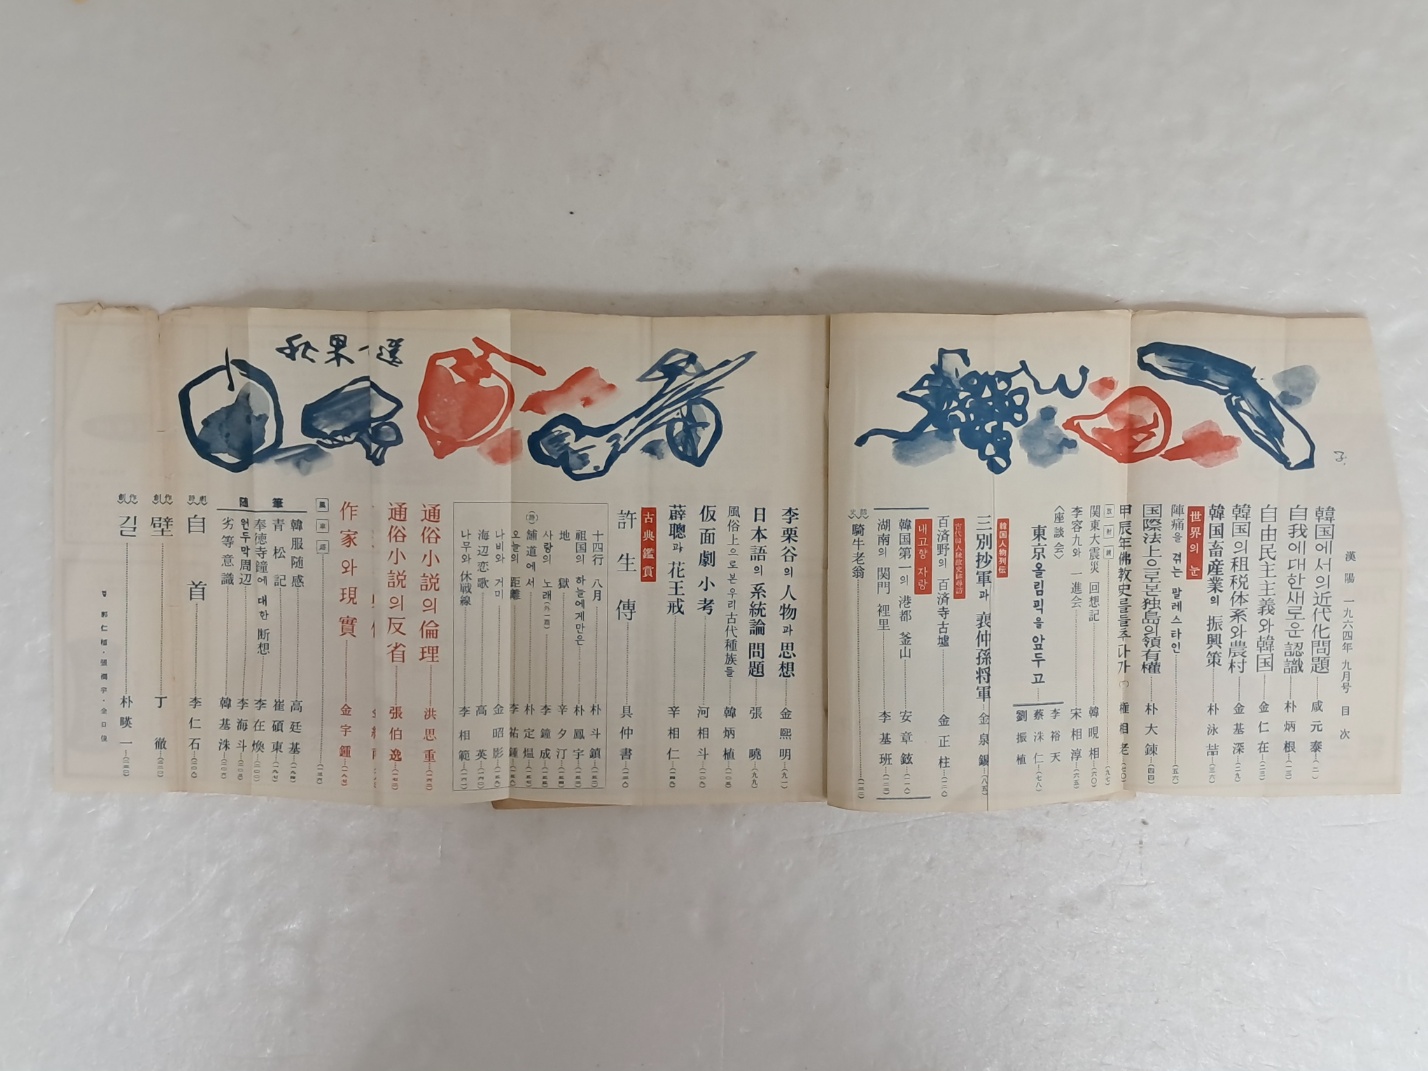 漢陽 一九六四年 九月号 目次
韓国에서의 近代化問題 咸元泰
自我에 대한 새로운 認識 朴炳根
自由民主主義와 韓国 金仁在
韓国의 租税体系와 農村 金基深
韓国畜産業의 振興策 朴泳詰
世界의 눈
陣痛을 겪는 팔레스타인
国際法上으로 본 独島의 領有權 朴大錬
甲辰年佛教史를 들추다가
関東大震災 回想記 韓晛相
李容九와 一進会 宋相淳
〈座談会〉
東京올림픽을 앞두고
李裕天
蔡洙仁
劉振植
韓国人物列伝
三別抄軍과 裵仲孫将軍 金泉錫
百済野의 百済寺古墟 金正柱
내고향 자랑
韓国第一의 港都 釜山 安章鉉
湖南의 関門 裡里 李基班
騎牛老翁
李栗谷의 人物과 思想 金熙明
日本語의 系統論 問題 張暁
風俗上으로 본 우리 古代種族들 韓炳植
仮面劇 小考 河相斗
薛聰과 花王戒 辛相仁
古典鑑賞
許生傳 具仲書
十四行 八月 朴斗鎮
祖国의 하늘에게만은 朴鳳宇
地獄 辛夕汀
사랑의 노래 李鐘成
舗道에서 朴定熅
오늘의 距離 李祐鍾
나비와 거미 金昭影
海辺恋歌 高英
나무와 休戦線 李相範
秋果一選
通俗小説의 倫理 洪思重
通俗小説의 反省 張伯逸
作家와 現實 金宇鍾
隨筆
韓服随感 高廷基
青松記 崔碩東
奉徳寺鐘에 대한 断想 李在煥
원두막周辺 李海斗
劣等意識 韓基洙
自首 李仁石
創作
壁 丁徹
創作
길 朴暎一